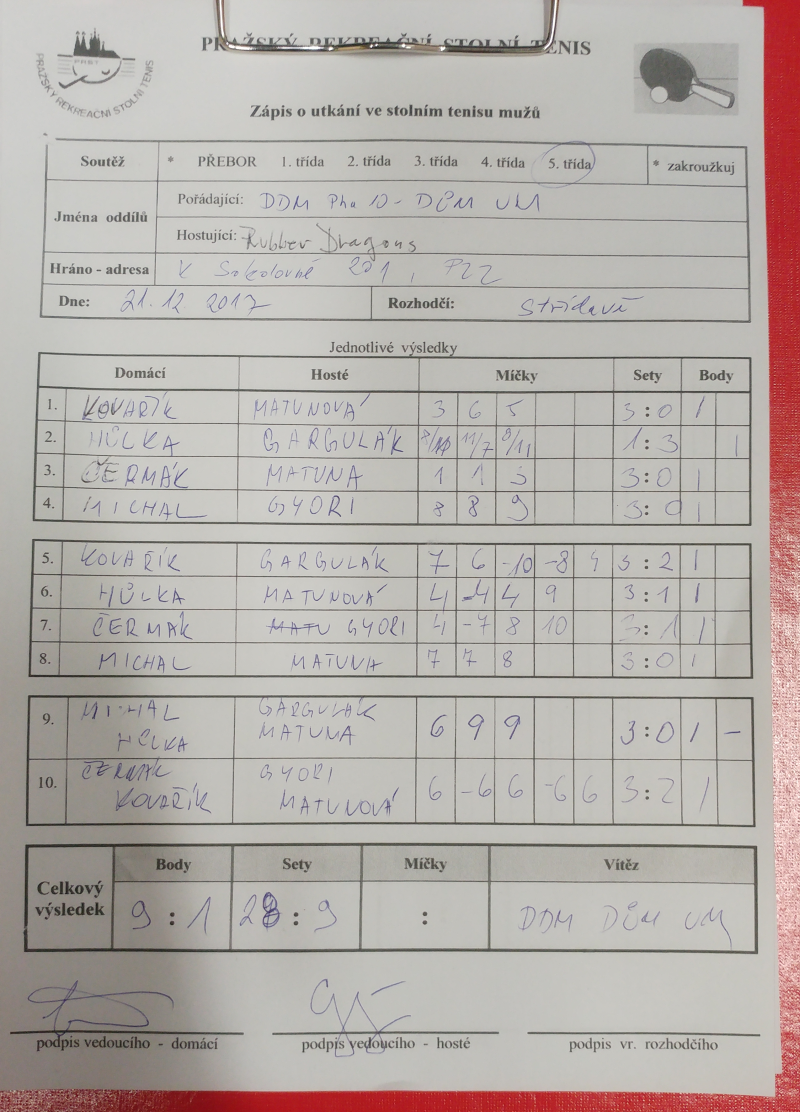 PRAŽSKÝ REKREAČNÍ STOLNÍ TENIS
PRST
PRAŽSKÝ REKREAČNÍ STOLNÍ TENIS
Zápis o utkání ve stolním tenisu mužů
Soutěž * PŘEBOR 1. třída 2. třída 3. třída 4. třída 5. třída * zakroužkuj
Jména oddílů
Pořádající: DDM Pha 10 - DŮM UM
Hostující: Rubber Dragons
Hráno - adresa K Sokolovně 201, P22
Dne: 21.12.2017 Rozhodčí: Střídavě
Jednotlivé výsledky
Domácí Hosté Míčky Sety Body
1. KOVAŘÍK MATUNOVÁ 3 6 5 3:0 1
2. HŮLKA GARGULÁK 11/7 8/11 1:3 1
3. ČERMÁK MATUNA 1 1 3:0 1
4. MICHAL GYORI 8 8 9 3:0 1
5. KOVAŘÍK GARGULÁK 7 6 -10 -8 4 3:2 1
6. HŮLKA MATUNOVÁ 4 -4 4 9 3:1 1
7. ČERMÁK MATU GYORI 4 -7 8 10 3:1 1
8. MICHAL MATUNA 7 7 8 3:0 1
9. MICHAL GARGULÁK
HŮLKA MATUNA 6 9 9 3:0 1 –
10. ČERMÁK GYORI
KOVAŘÍK MATUNOVÁ 6 -6 6 -6 6 3:2 1
Celkový výsledek
Body Sety Míčky Vítěz
9:1 28:9 : DDM DŮM UM
podpis vedoucího - domácí podpis vedoucího - hosté podpis vr. rozhodčího